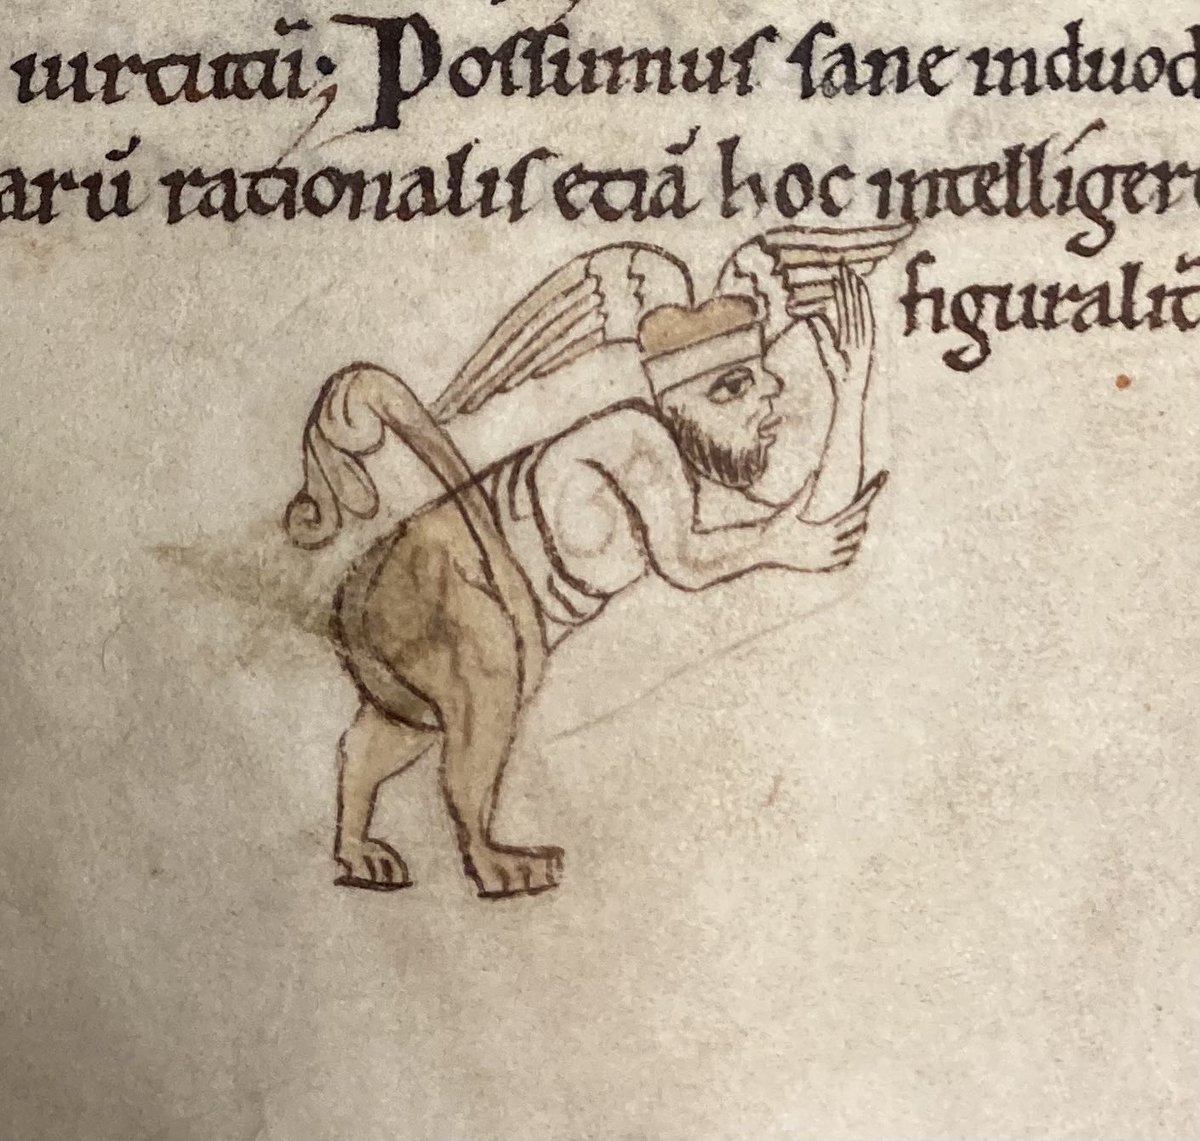 uirtutū; Possumus sane induod
arū rationalis etiā hoc intelligere
figuralit̄